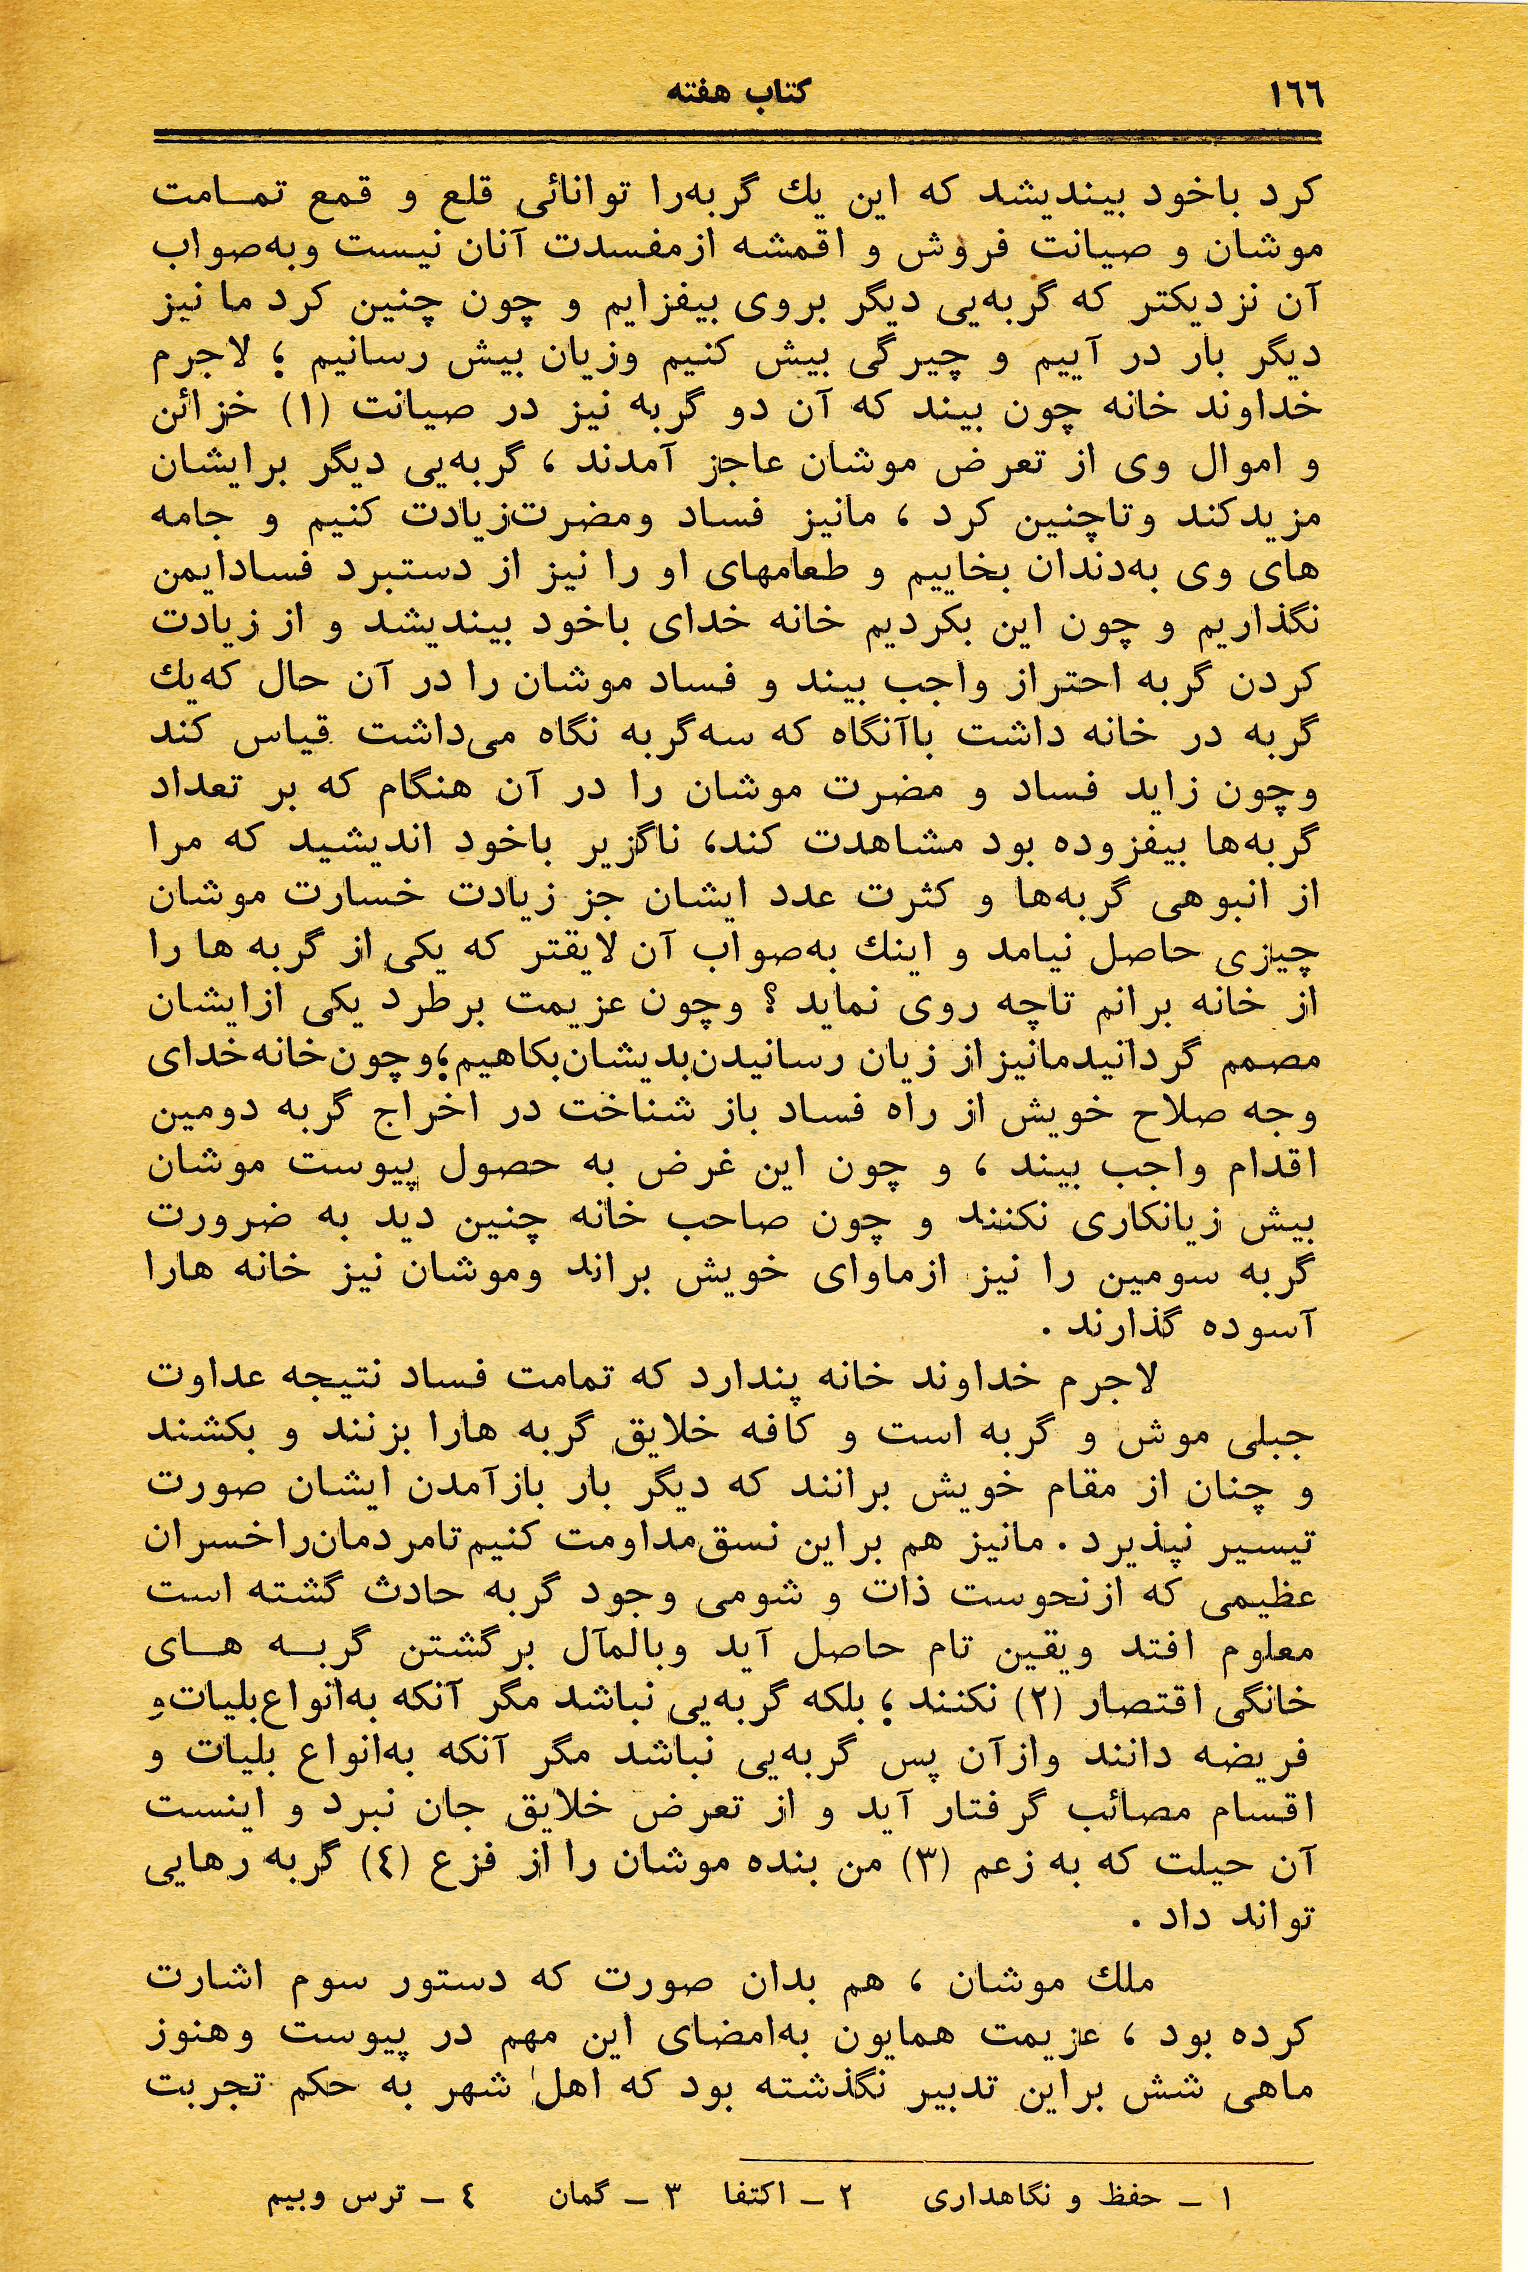 ١٦٦
كتاب هفته
كرد باخود بينديشد كه اين يك گربه‌را توانائی قلع و قمع تمـامت
موشان و صيانت فروش و اقمشه ازمفسدت آنان نيست وبه‌صواب
آن نزديكتر كه گربه‌يی ديگر بروی بيفزايم و چون چنين كرد ما نيز
ديگر بار در آييم و چيرگی بيش كنيم وزيان بيش رسانيم ؛ لاجرم
خداوند خانه چون بيند كه آن دو گربه نيز در صيانت (١) خزائن
و اموال وی از تعرض موشان عاجز آمدند ، گربه‌يی ديگر برايشان
مزيدكند وتاچنين كرد ، مانيز فساد ومضرت‌زيادت كنيم و جامه
های وی به‌دندان بخاييم و طعامهای او را نيز از دستبرد فسادايمن
نگذاريم و چون اين بكرديم خانه خدای باخود بينديشد و از زيادت
كردن گربه احتراز واجب بيند و فساد موشان را در آن حال كه‌يك
گربه در خانه داشت باآنگاه كه سه‌گربه نگاه می‌داشت قياس كند
وچون زايد فساد و مضرت موشان را در آن هنگام كه بر تعداد
گربه‌ها بيفزوده بود مشاهدت كند، ناگزير باخود انديشيد كه مرا
از انبوهی گربه‌ها و كثرت عدد ايشان جز زيادت خسارت موشان
چيزی حاصل نيامد و اينك به‌صواب آن لايقتر كه يكی از گربه ها را
از خانه برانم تاچه روی نمايد ؟ وچون عزيمت برطرد يكی ازايشان
مصمم گردانيدمانيزاز زيان رسانيدن‌بديشان‌بكاهيم؛وچون‌خانه‌خدای
وجه صلاح خويش از راه فساد باز شناخت در اخراج گربه دومين
اقدام واجب بيند ، و چون اين غرض به حصول پيوست موشان
بيش زيانكاری نكنند و چون صاحب خانه چنين ديد به ضرورت
گربه سومين را نيز ازماوای خويش براند وموشان نيز خانه هارا
آسوده گذارند .
لاجرم خداوند خانه پندارد كه تمامت فساد نتيجه عداوت
جبلی موش و گربه است و كافه خلايق گربه هارا بزنند و بكشند
و چنان از مقام خويش برانند كه ديگر بار بازآمدن ايشان صورت
تيسير نپذيرد . مانيز هم براين نسق‌مداومت كنيم‌تامردمان‌راخسران
عظيمی كه ازنحوست ذات و شومی وجود گربه حادث گشته است
معلوم افتد ويقين تام حاصل آيد وبالمآل برگشتن گربـه هـای
خانگی اقتصار (٢) نكنند ؛ بلكه گربه‌يی نباشد مگر آنكه به‌انواع‌بليات‌و
فريضه دانند وازآن پس گربه‌يی نباشد مگر آنكه به‌انواع بليات و
اقسام مصائب گرفتار آيد و از تعرض خلايق جان نبرد و اينست
آن حيلت كه به زعم (٣) من بنده موشان را از فزع (٤) گربه رهايی
تواند داد .
ملك موشان ، هم بدان صورت كه دستور سوم اشارت
كرده بود ، عزيمت همايون به‌امضای اين مهم در پيوست وهنوز
ماهی شش براين تدبير نگذشته بود كه اهل شهر به حكم تجربت
١ ــ حفظ و نگاهداری ٢ ــ اكتفا ٣ ــ گمان ٤ ــ ترس وبيم